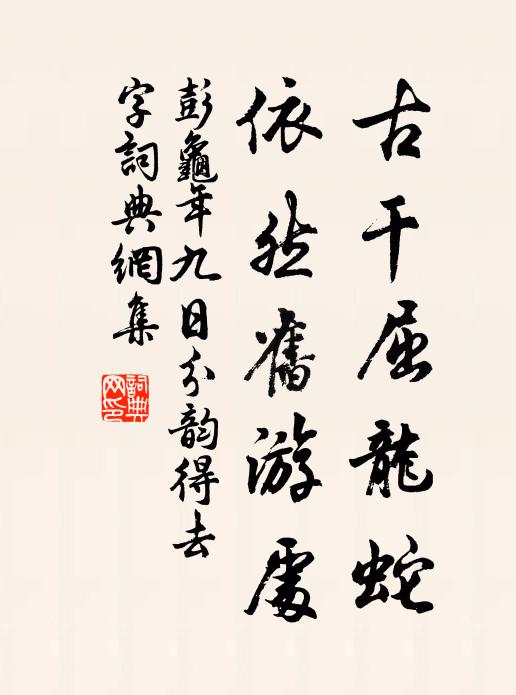 古干屈龍蛇
依然舊游處
彭龜年九日分韵得去
字詞典網集
詞典
网印